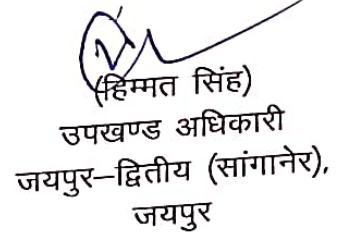 (हिम्मत सिंह)
उपखण्ड अधिकारी
जयपुर–द्वितीय (सांगानेर),
जयपुर